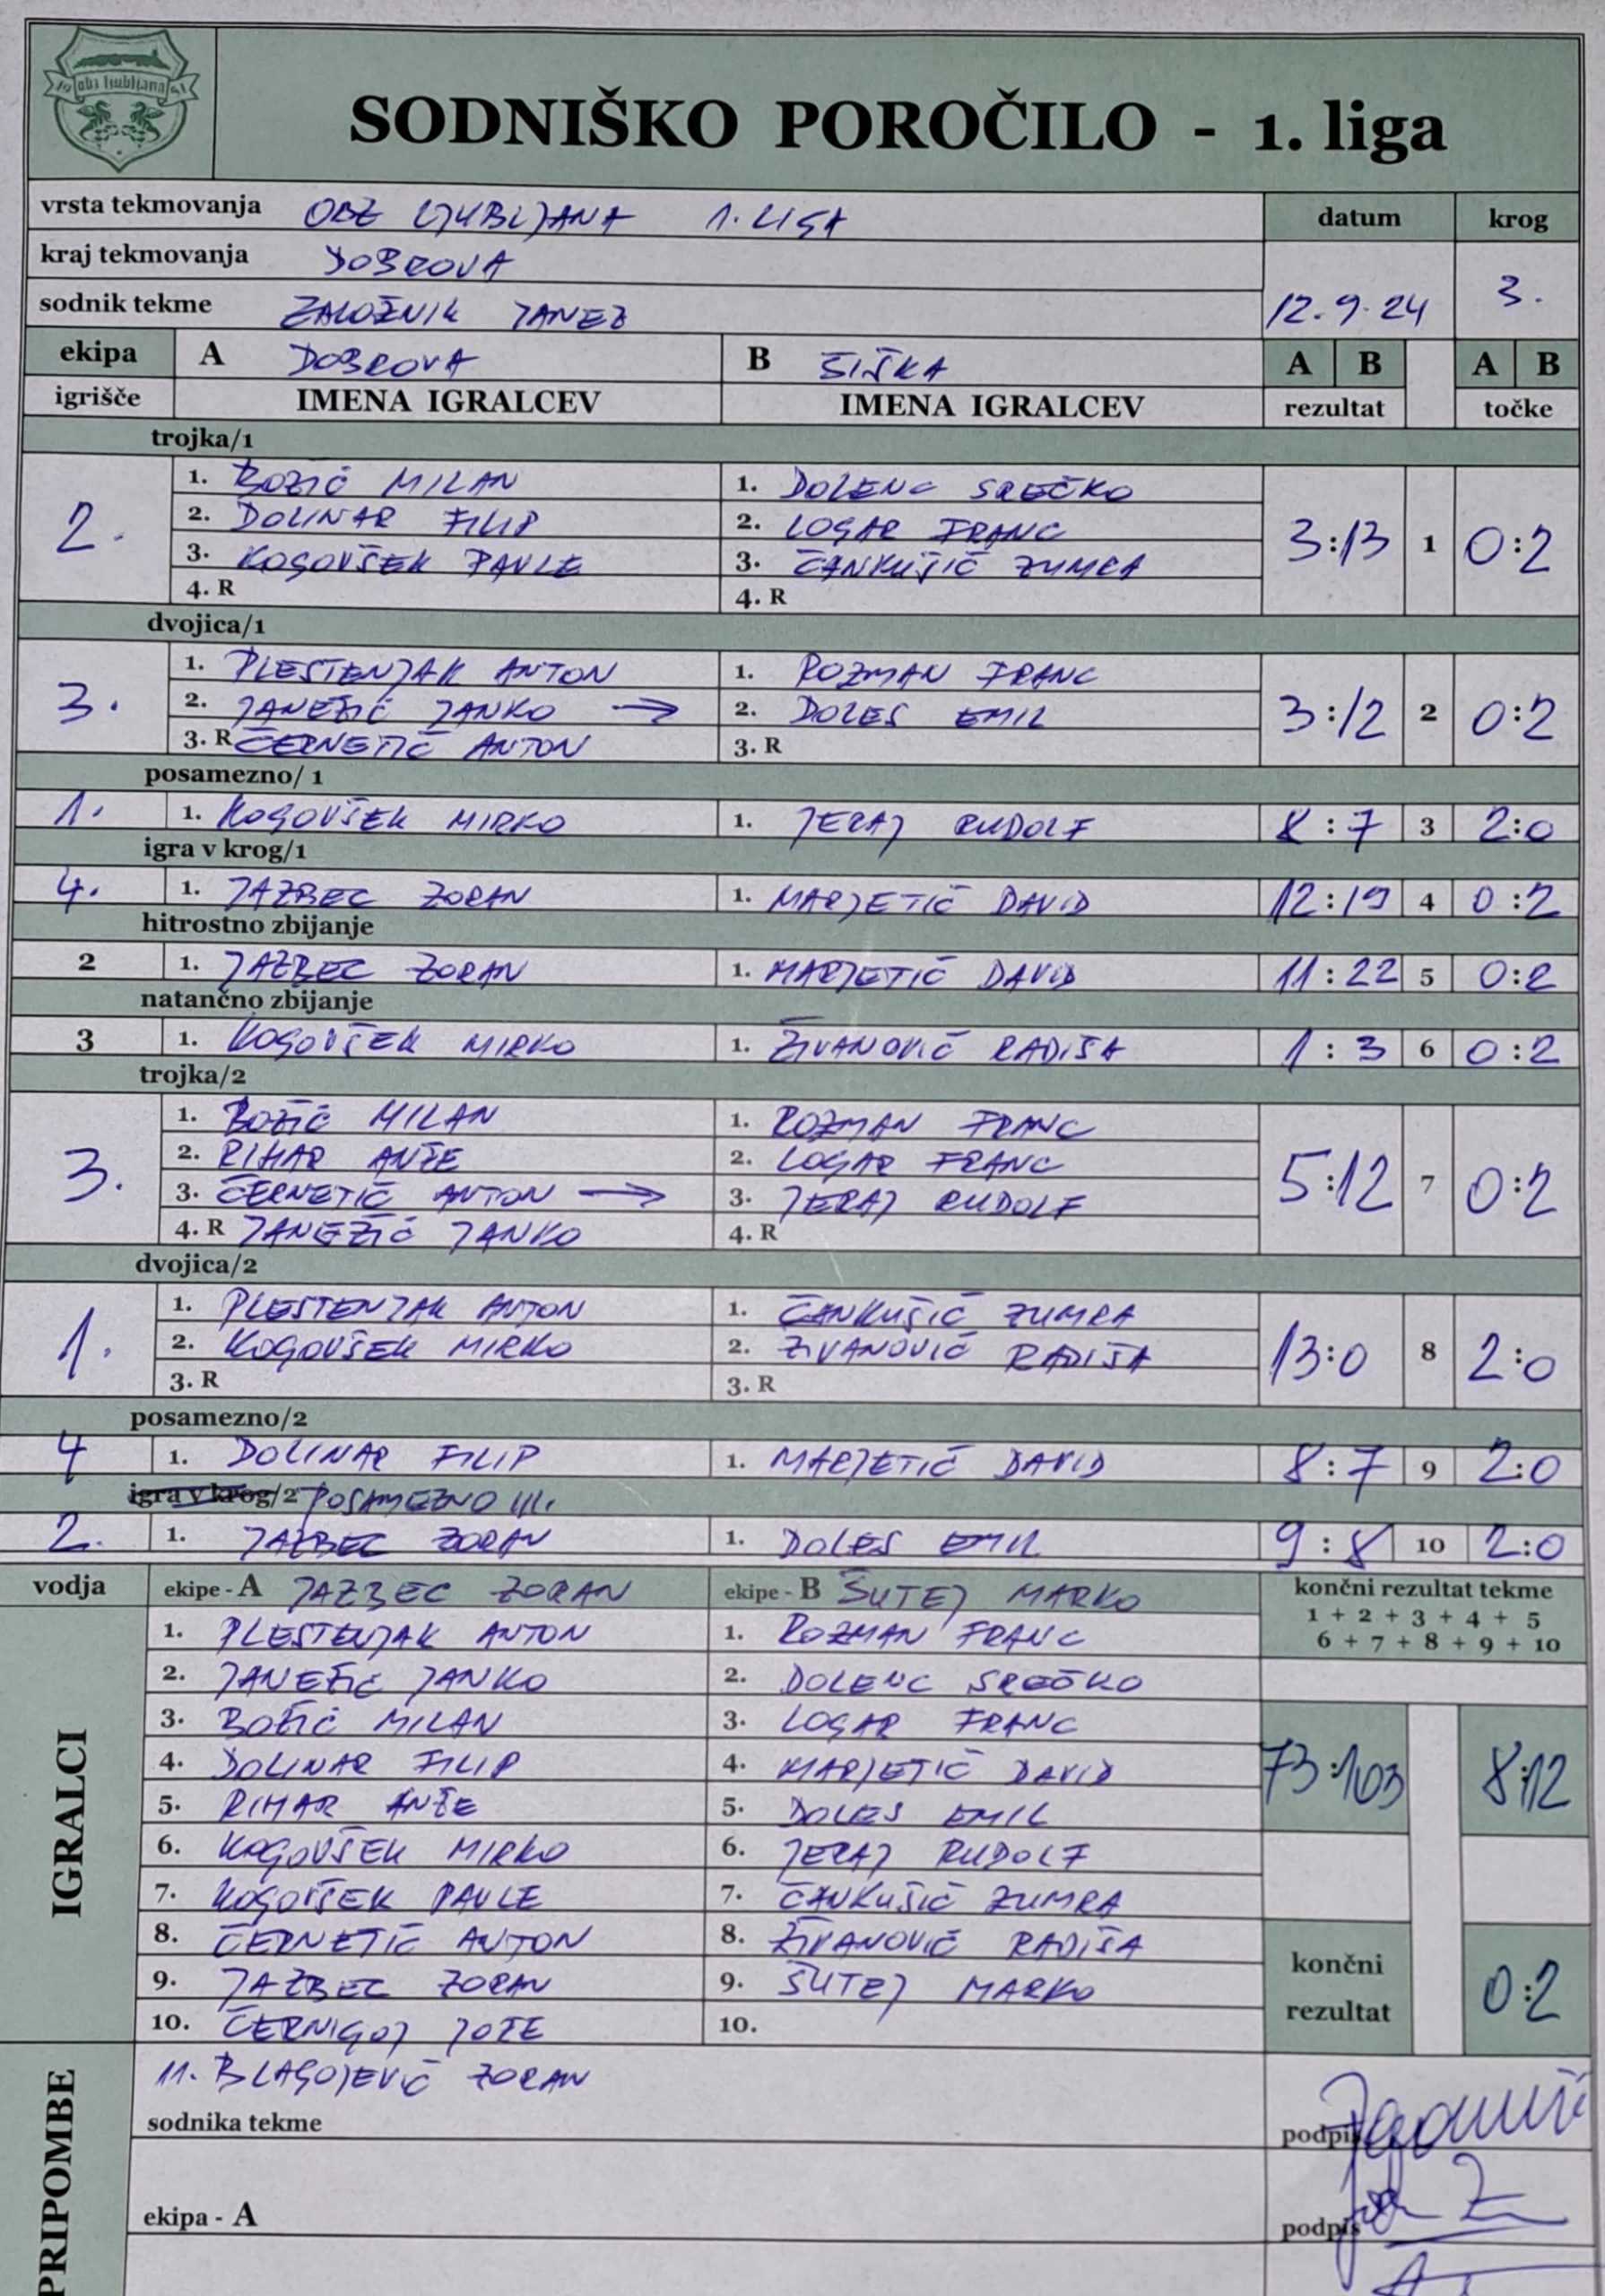 19 obz ljubljana 51
SODNIŠKO POROČILO - 1. liga
vrsta tekmovanja OBZ LJUBLJANA 1. LIGA datum krog
kraj tekmovanja DOBROVA
sodnik tekme ZALOŽNIK JANEZ 12.9.24 3.
ekipa A DOBROVA B ŠIŠKA A B A B
igrišče IMENA IGRALCEV IMENA IGRALCEV rezultat točke
trojka/1
1. BOŽIČ MILAN 1. DOLENC SREČKO
2. 2. DOLINAR FILIP 2. LOGAR FRANC 3:13 1 0:2
3. KOGOVŠEK PAVLE 3. ČANKUŠIČ ZUMRA
4. R 4. R
dvojica/1
1. PLESTENJAK ANTON 1. ROZMAN FRANC
3. 2. JANEŽIČ JANKO → 2. DOLES EMIL 3:12 2 0:2
3. R ČERNETIČ ANTON 3. R
posamezno/ 1
1. 1. KOGOVŠEK MIRKO 1. JERAJ RUDOLF 8:7 3 2:0
igra v krog/1
4. 1. JAZBEC ZORAN 1. MARJETIČ DAVID 12:19 4 0:2
hitrostno zbijanje
2 1. JAZBEC ZORAN 1. MARJETIČ DAVID 11:22 5 0:2
natančno zbijanje
3 1. KOGOVŠEK MIRKO 1. ŽIVANOVIČ RADIŠA 1:3 6 0:2
trojka/2
1. BOŽIČ MILAN 1. ROZMAN FRANC
3. 2. RIHAR ANŽE 2. LOGAR FRANC 5:12 7 0:2
3. ČERNETIČ ANTON → 3. JERAJ RUDOLF
4. R JANEŽIČ JANKO 4. R
dvojica/2
1. PLESTENJAK ANTON 1. ČANKUŠIČ ZUMRA
1. 2. KOGOVŠEK MIRKO 2. ŽIVANOVIČ RADIŠA 13:0 8 2:0
3. R 3. R
posamezno/2
4 1. DOLINAR FILIP 1. MARJETIČ DAVID 8:7 9 2:0
igra v krog/2 POSAMEZNO III.
2. 1. JAZBEC ZORAN 1. DOLES EMIL 9:8 10 2:0
vodja ekipe - A JAZBEC ZORAN ekipe - B ŠUTEJ MARKO končni rezultat tekme
1 + 2 + 3 + 4 + 5
6 + 7 + 8 + 9 + 10
IGRALCI
1. PLESTENJAK ANTON 1. ROZMAN FRANC
2. JANEŽIČ JANKO 2. DOLENC SREČKO
3. BOŽIČ MILAN 3. LOGAR FRANC
4. DOLINAR FILIP 4. MARJETIČ DAVID 73:103 8:12
5. RIHAR ANŽE 5. DOLES EMIL
6. KOGOVŠEK MIRKO 6. JERAJ RUDOLF
7. KOGOVŠEK PAVLE 7. ČANKUŠIČ ZUMRA
8. ČERNETIČ ANTON 8. ŽIVANOVIČ RADIŠA
9. JAZBEC ZORAN 9. ŠUTEJ MARKO
10. ČERNIGOJ JOŽE 10.
končni rezultat 0:2
PRIPOMBE
11. BLAGOJEVIČ ZORAN
sodnika tekme podpis
ekipa - A podpis